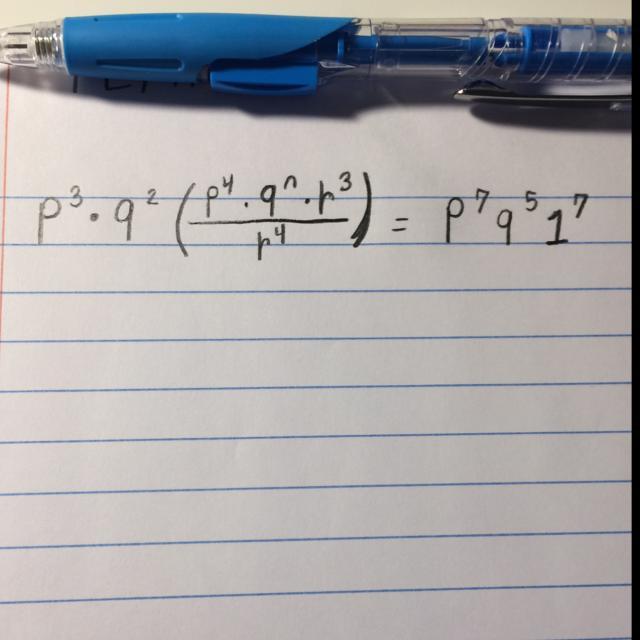 p³ · q² (p⁴ · qⁿ · r³ / r⁴) = p⁷ q⁵ 1⁷